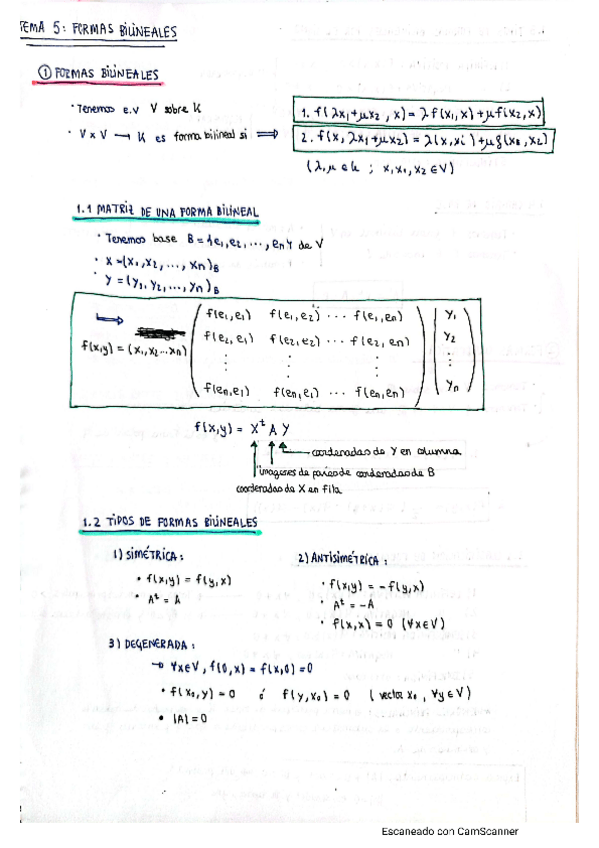 TEMA 5: FORMAS BILINEALES
① FORMAS BILINEALES
· Tenemos e.v V sobre K
· V x V → K es forma bilineal si ⇒
1. f(λx₁+μx₂, x) = λf(x₁,x)+μf(x₂,x)
2. f(x, λx₁+μx₂) = λ(x,x₁)+μf(x₂,x₂)
(λ,μ ∈ k ; x,x₁,x₂ ∈ V)
1.1 MATRIZ DE UNA FORMA BILINEAL
· Tenemos base B = {e₁,e₂, ..., en} de V
· X = (x₁,x₂, ..., xn)B
· Y = (y₁, y₂, ..., yn)B
f(e₁,e₁) f(e₁,e₂) ... f(e₁,en) y₁
f(e₂,e₁) f(e₂,e₂) ... f(e₂,en) y₂
f(x,y) = (x₁,x₂...xn)
f(en,e₁) f(en,e₁) ... f(en,en) yn
f(x,y) = Xᵗ A Y
coordenadas de Y en columna
imagenes de pares de coordenadas de B
coordenadas de X en fila
1.2 TIPOS DE FORMAS BILINEALES
1) SIMÉTRICA:
· f(x,y) = f(y,x)
· Aᵗ = A
2) ANTISIMÉTRICA:
· f(x,y) = -f(y,x)
· Aᵗ = -A
· f(x,x) = 0 (∀x∈V)
3) DEGENERADA:
→ ∀x∈V, f(0,x) = f(x,0) = 0
· f(x₀,y) = 0 ó f(y,x₀) = 0 (vector x₀, ∀y∈V)
· |A| = 0
Escaneado con CamScanner